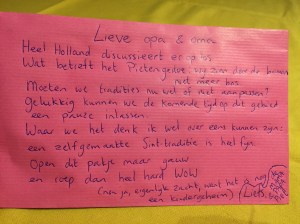 Lieve opa & oma
Heel Holland discussieert erop los
Wat betreft het Pietengedoe, zijn daar de bomen
niet meer bos
Moeten we tradities nu wel of niet aanpassen?
Gelukkig kunnen we de komende tijd op dit gebied
een pauze inlassen.
Waar we het denk ik wel over eens kunnen zijn:
een zelfgemaakte Sint-traditie is heel fijn.
Open dit pakje maar gauw
en roep dan heel hard WOW
(nou ja, eigenlijk zacht, want het is nog
een kindergeheim) Liefs